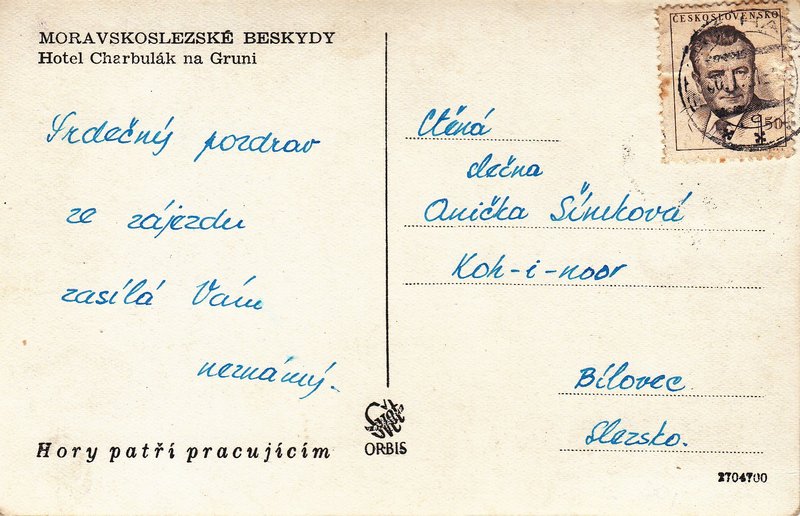 MORAVSKOSLEZSKÉ BESKYDY
Hotel Charbulák na Gruni
Srdečný pozdrav
ze zájezdu
zasílá Vám
neznámý.
Hory patří pracujícím
ORBIS
ČESKOSLOVENSKO
1,50
Ctěná
slečna
Anička Šimíková
Koh-i-noor
Bílovec
Slezsko.
2704700